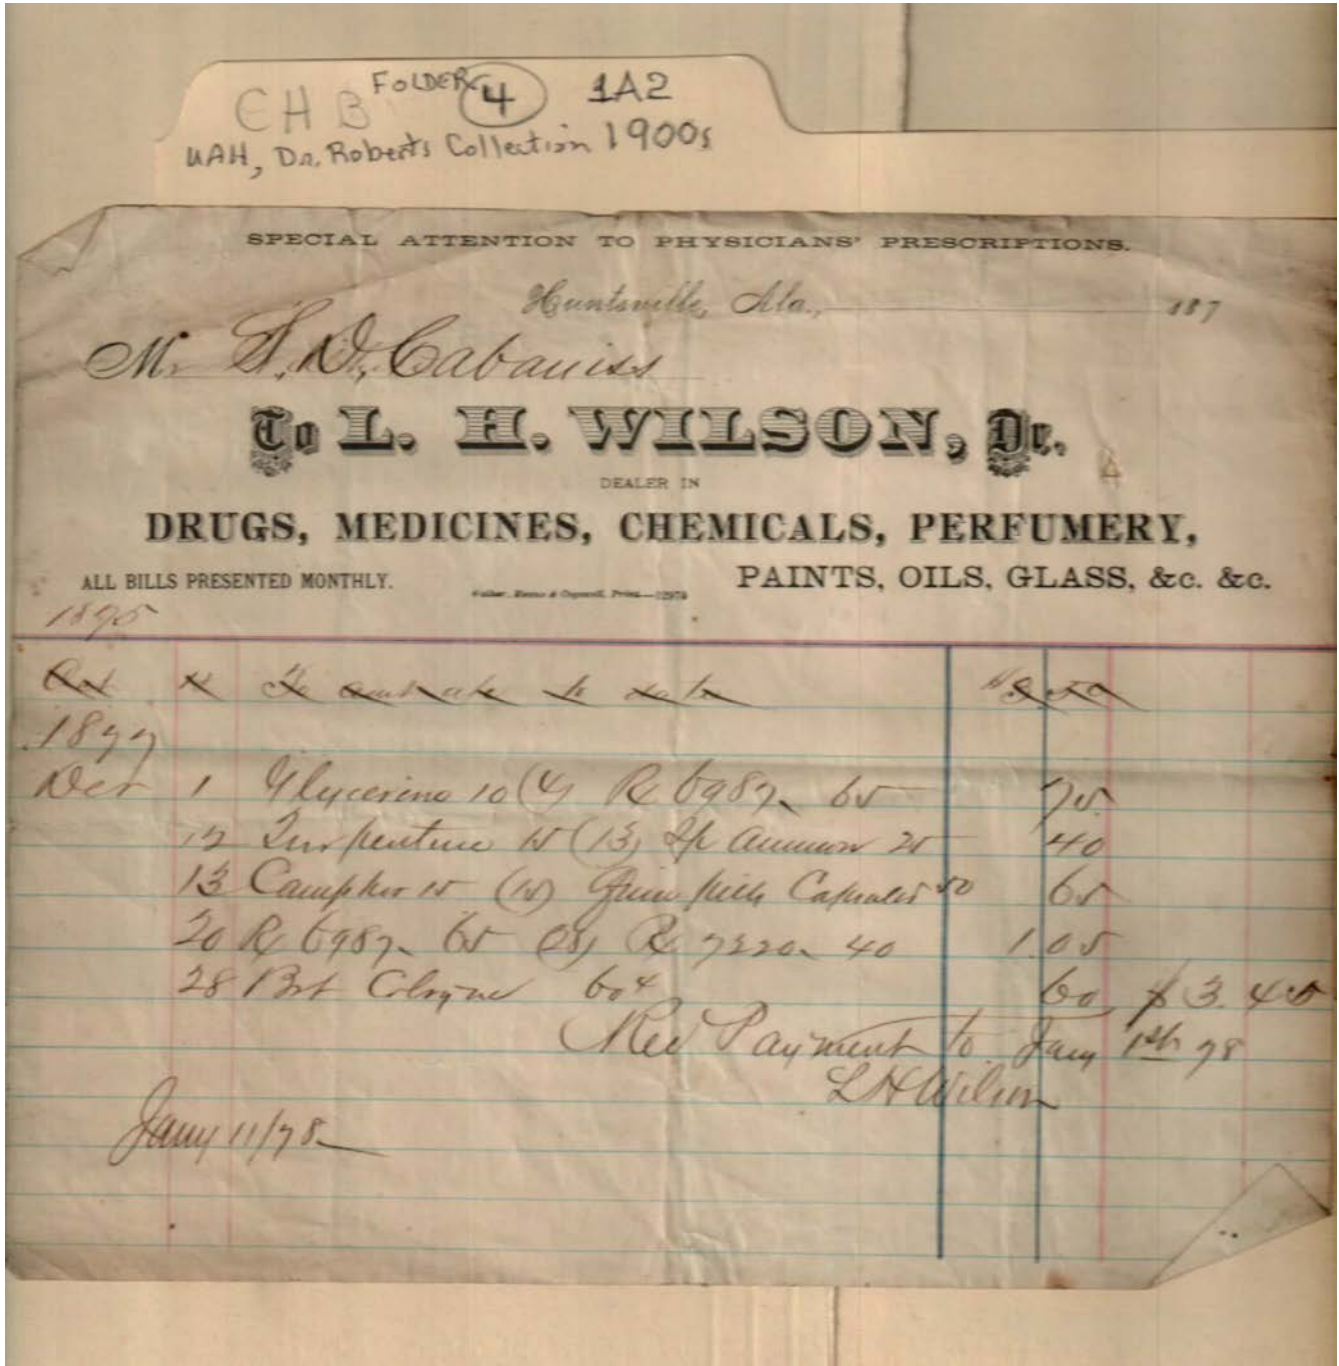 CHB FOLDER 4 1A2
UAH, Dr. Roberts Collection 1900s
SPECIAL ATTENTION TO PHYSICIANS' PRESCRIPTIONS.
Huntsville, Ala., 187
M. S. D. Cabaniss
To L. H. WILSON, Dr.
DEALER IN
DRUGS, MEDICINES, CHEMICALS, PERFUMERY,
ALL BILLS PRESENTED MONTHLY. PAINTS, OILS, GLASS, &c. &c.
1875
1877
Dec 1 Glycerine 10 (4) Rx 6987 65 75
12 Turpentine 15 (13) Sp Ammon 25 40
13 Camphor 15 (15) Capsules 50 65
20 Rx 6987 65 (28) Rx 7220 40 1.05
28 Bot Cologne 60 60 $3.45
Rec Payment to Jany 1st 78
L H Wilson
Jany 11/78